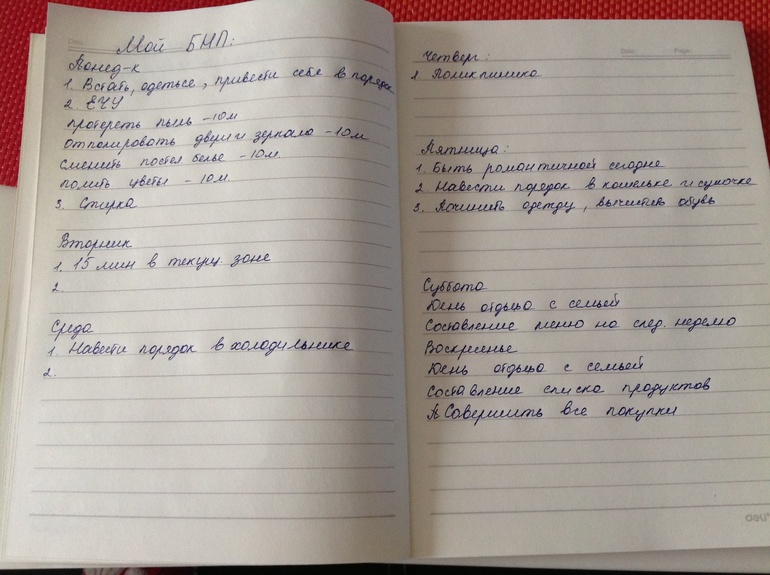 Мой БНП:
Понед-к
1. Встать, одеться, привести себя в порядок
2. ЕЧУ
протереть пыль - 10м
отполировать двери и зеркала - 10м
сменить постел белье - 10м.
полить цветы - 10м.
3. Стирка
Вторник
1. 15 мин в текущ. зоне
2.
Среда
1. Навести порядок в холодильнике
2.
Date: Page:
Четверг:
1. Поликлиника
Пятница:
1. Быть романтичной сегодня
2. Навести порядок в кошельке и сумочке
3. Починить одежду, вычистив обувь
Суббота
День отдыха с семьей
Составление меню на след. неделю
Воскресенье
День отдыха с семьей
Составление списка продуктов
Совершить все покупки
deli